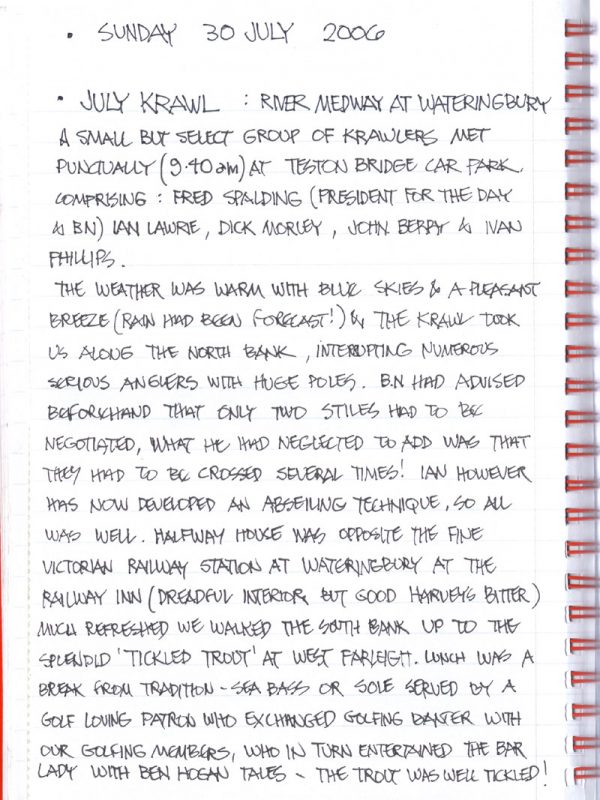 • SUNDAY 30 JULY 2006
• JULY KRAWL : RIVER MEDWAY AT WATERINGBURY
A SMALL BUT SELECT GROUP OF KRAWLERS MET
PUNCTUALLY (9.40am) AT TESTON BRIDGE CAR PARK.
COMPRISING : FRED SPALDING (PRESIDENT FOR THE DAY
& BN) IAN LAWRIE, DICK MORLEY, JOHN BERRY & IVAN
PHILLIPS.
THE WEATHER WAS WARM WITH BLUE SKIES & A PLEASANT
BREEZE (RAIN HAD BEEN FORECAST!) & THE KRAWL TOOK
US ALONG THE NORTH BANK, INTERRUPTING NUMEROUS
SERIOUS ANGLERS WITH HUGE POLES. BN HAD ADVISED
BEFOREHAND THAT ONLY TWO STILES HAD TO BE
NEGOTIATED, WHAT HE HAD NEGLECTED TO ADD WAS THAT
THEY HAD TO BE CROSSED SEVERAL TIMES! IAN HOWEVER
HAS NOW DEVELOPED AN ABSEILING TECHNIQUE, SO ALL
WAS WELL. HALFWAY HOUSE WAS OPPOSITE THE FINE
VICTORIAN RAILWAY STATION AT WATERINGBURY AT THE
RAILWAY INN (DREADFUL INTERIOR, BUT GOOD HARVEYS BITTER)
MUCH REFRESHED WE WALKED THE SOUTH BANK UP TO THE
SPLENDID 'TICKLED TROUT' AT WEST FARLEIGH. LUNCH WAS A
BREAK FROM TRADITION - SEA BASS OR SOLE SERVED BY A
GOLF LOVING PATRON WHO EXCHANGED GOLFING BANTER WITH
OUR GOLFING MEMBERS, WHO IN TURN ENTERTAINED THE BAR
LADY WITH BEN HOGAN TALES - THE TROUT WAS WELL TICKLED!